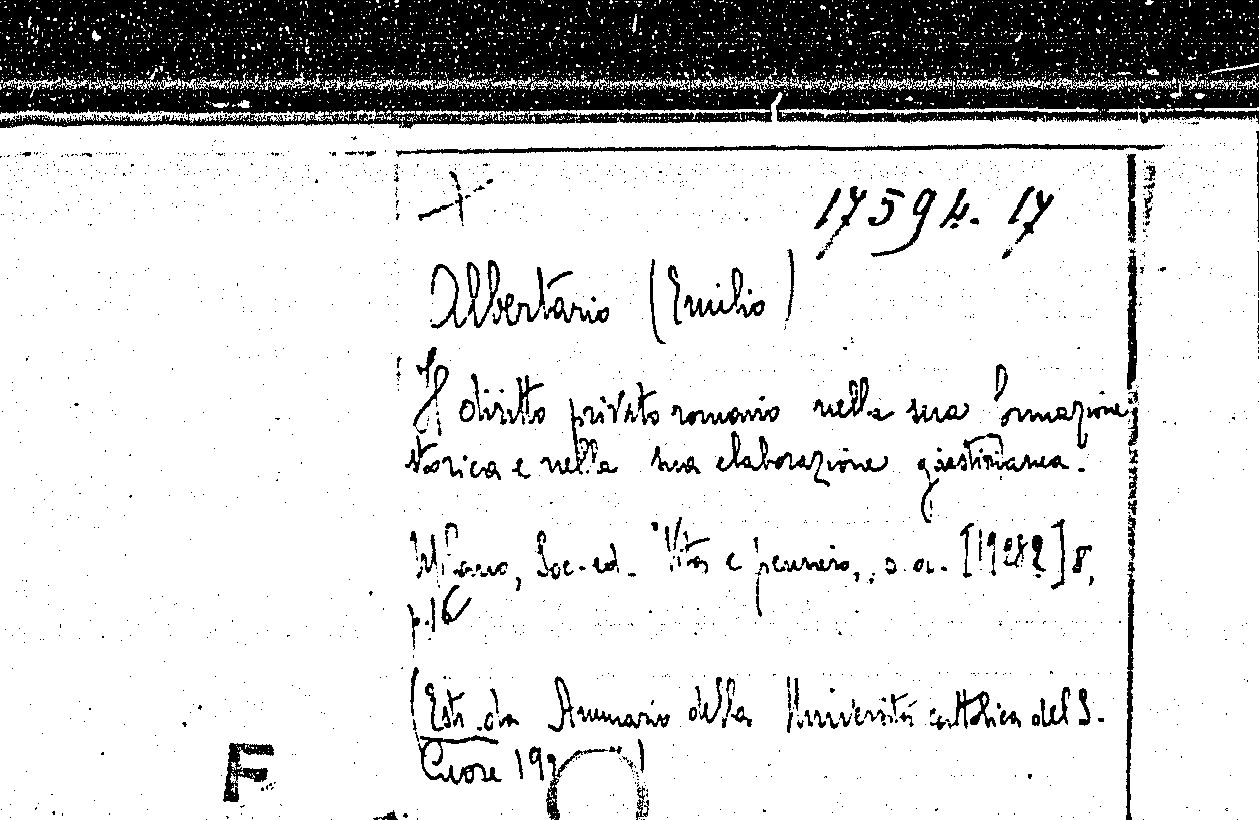 17594. 17
Albertario (Emilio)
Il diritto privato romano nella sua formazione
storica e nella sua elaborazione giustinianea.
Milano, Soc. ed. "Vita e pensiero", s. a. 8,
p. 16
(Estr. da Annuario della Università cattolica del S.
Cuore
F